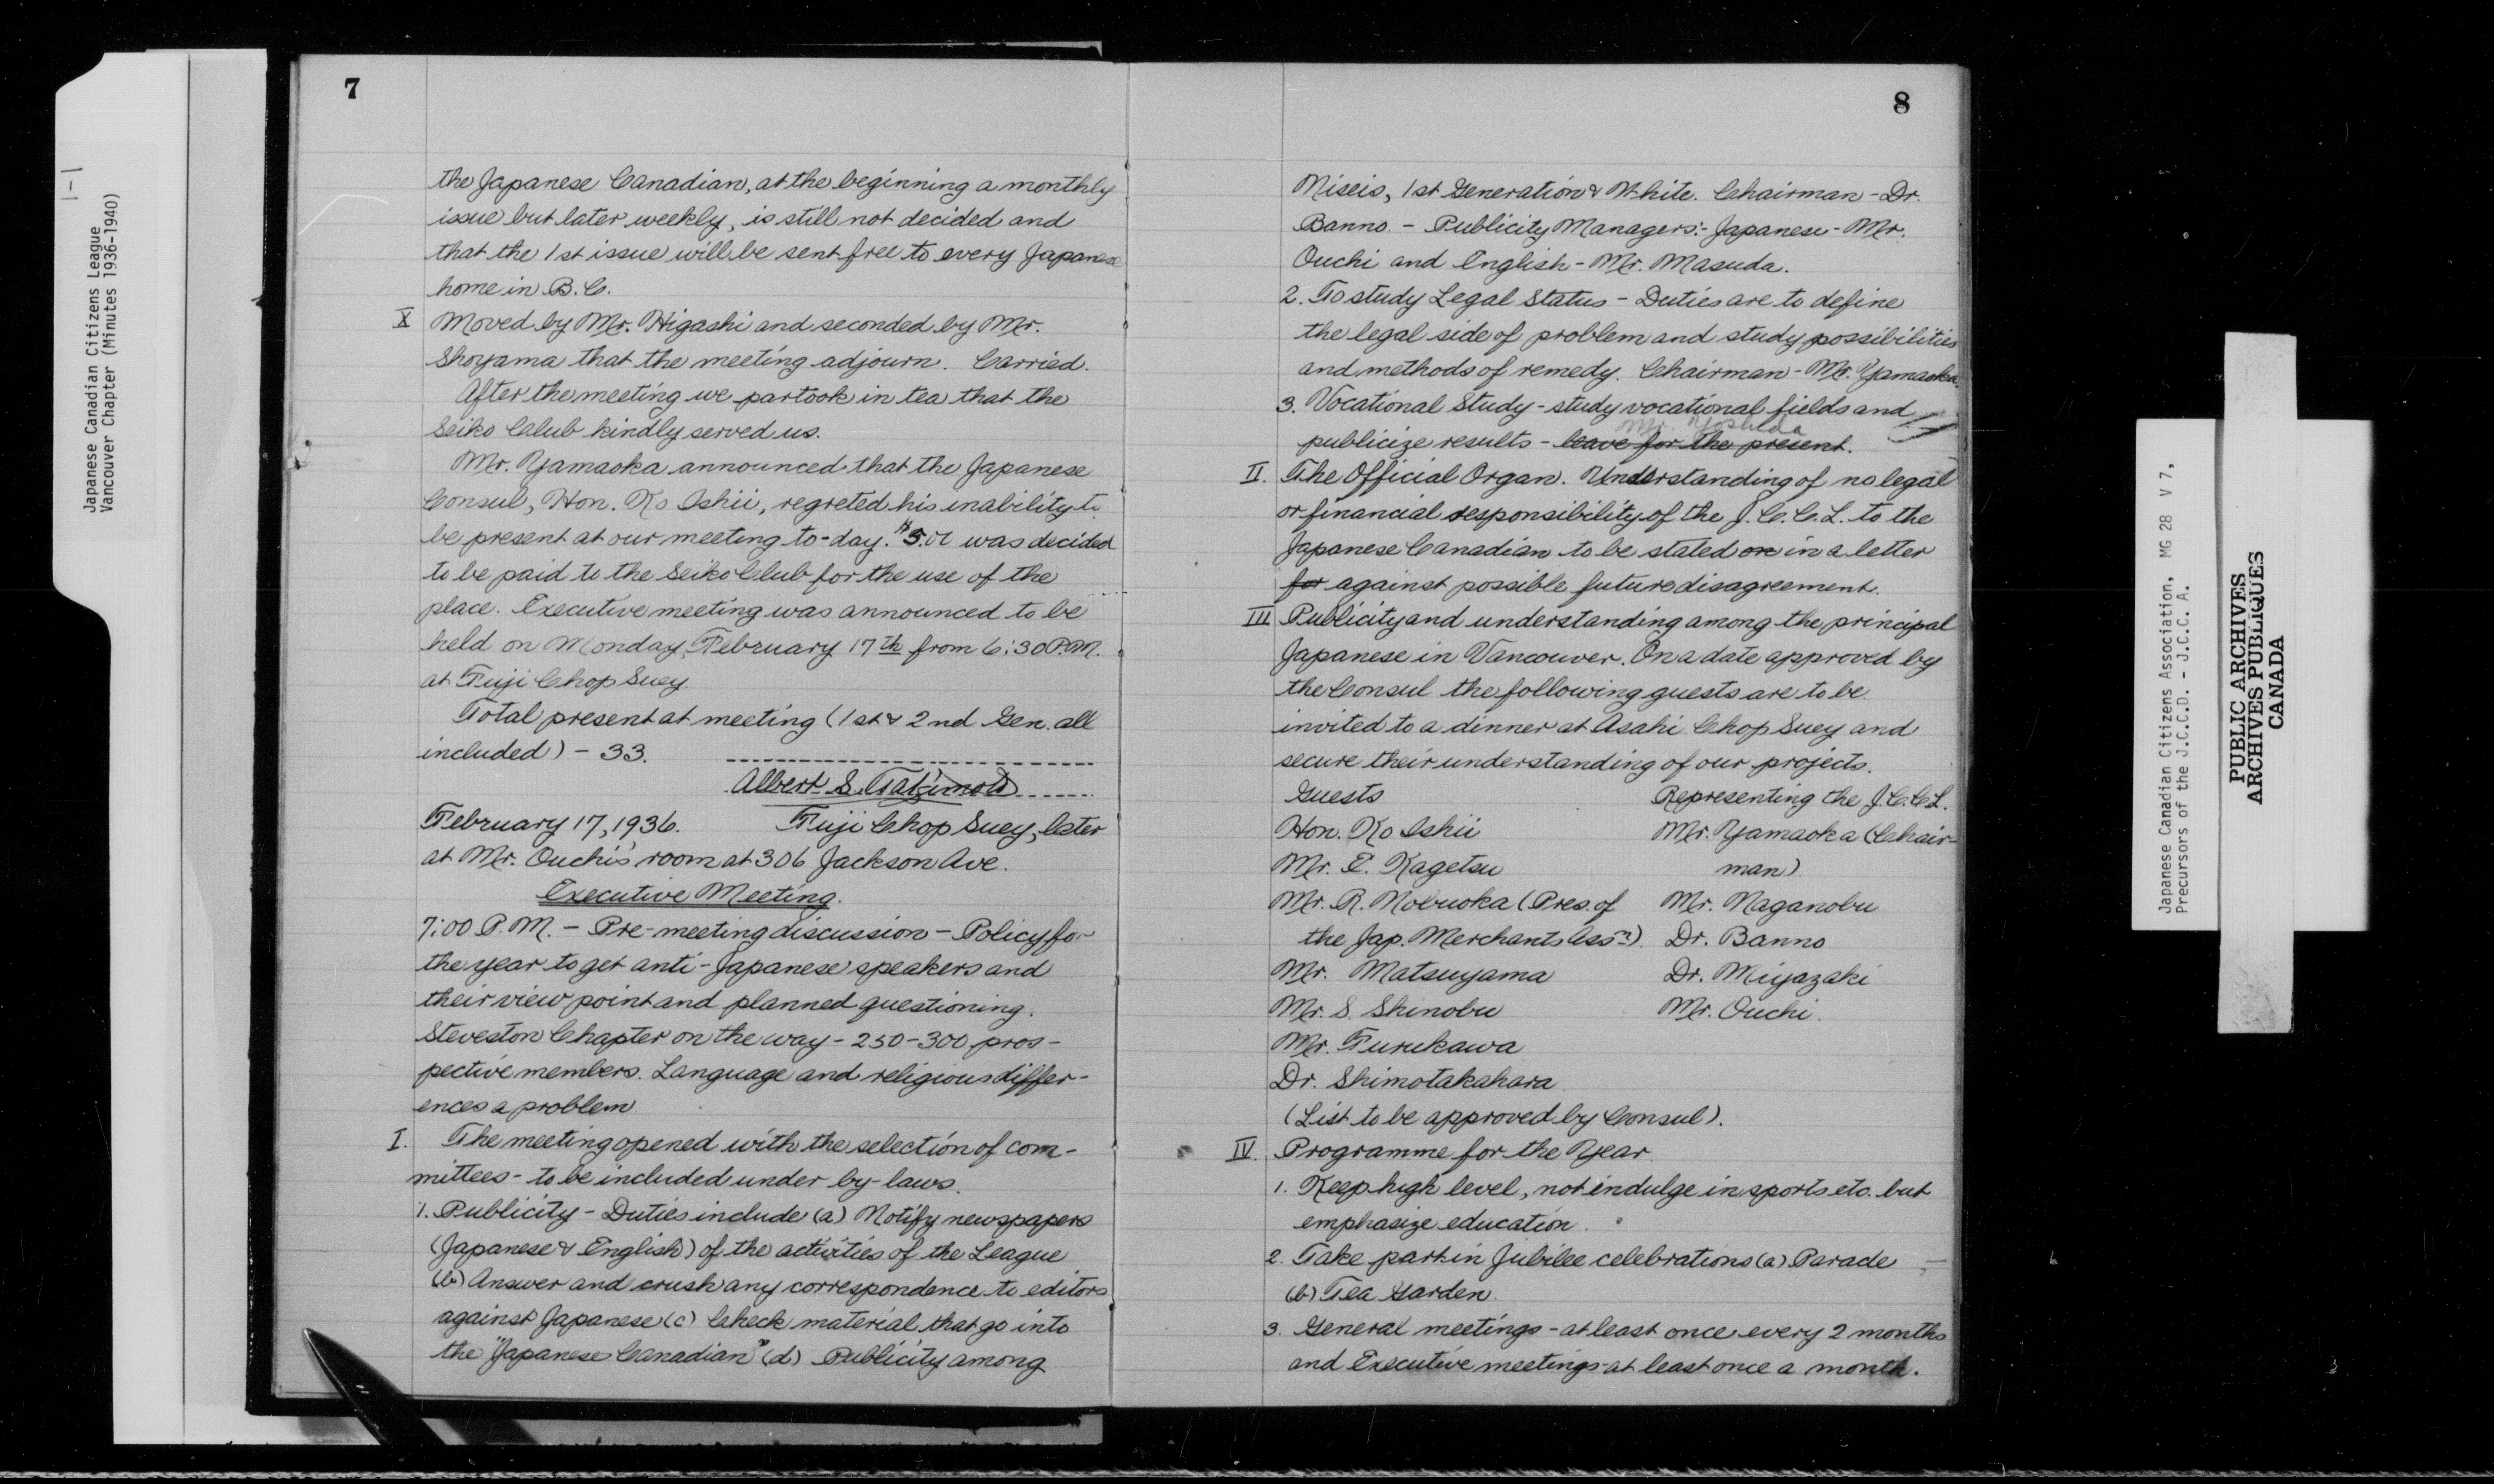 1-1
Japanese Canadian Citizens League
Vancouver Chapter (Minutes 1936-1940)
7
the Japanese Canadian, at the beginning a monthly
issue but later weekly, is still not decided and
that the 1st issue will be sent free to every Japanese
home in B.C.
X Moved by Mr. Higashi and seconded by Mr.
Shoyama that the meeting adjourn. Carried.
After the meeting we partook in tea that the
Seiko Club kindly served us.
Mr. Yamaoka announced that the Japanese
Consul, Hon. Ko Ishii, regreted his inability to
be present at our meeting to-day. $5.00 was decided
to be paid to the Seiko Club for the use of the
place. Executive meeting was announced to be
held on Monday, February 17th from 6:30 P.M.
at Fuji Chop Suey.
Total present at meeting (1st & 2nd Gen. all
included) - 33.
Albert S. Takimoto
February 17, 1936. Fuji Chop Suey, later
at Mr. Ouchi's room at 306 Jackson Ave.
Executive Meeting.
7:00 P.M. - Pre-meeting discussion - Policy for
the year to get anti-Japanese speakers and
their view point and planned questioning.
Steveston Chapter on the way - 250-300 pros-
pective members. Language and religious differ-
ences a problem
I. The meeting opened with the selection of com-
mittees - to be included under by-laws.
1. Publicity - Duties include (a) Notify newspapers
(Japanese & English) of the activities of the League
(b) Answer and crush any correspondence to editors
against Japanese (c) Check material that go into
the "Japanese Canadian" (d) Publicity among
8
Niseis, 1st Generation & White. Chairman - Dr.
Banno. - Publicity Managers:- Japanese - Mr.
Ouchi and English - Mr. Masuda.
2. To study Legal Status - Duties are to define
the legal side of problem and study possibilities
and methods of remedy. Chairman - Mr. Yamaoka.
3. Vocational Study - study vocational fields and
Mr. Yoshida
publicize results - leave for the present.
II. The Official Organ. Understanding of no legal
or financial responsibility of the J.C.C.L. to the
Japanese Canadian to be stated on in a letter
for against possible future disagreement.
III Publicity and understanding among the principal
Japanese in Vancouver. On a date approved by
the Consul the following guests are to be
invited to a dinner at Asahi Chop Suey and
secure their understanding of our projects.
Guests Representing the J.C.C.L.
Hon. Ko Ishii Mr. Yamaoka (Chair-
Mr. E. Kagetsu man)
Mr. R. Nobuoka (Pres. of Mr. Naganobu
the Jap. Merchants Ass'n). Dr. Banno
Mr. Matsuyama Dr. Miyazaki
Mr. S. Shinobu Mr. Ouchi.
Mr. Furukawa
Dr. Shimotakahara
(List to be approved by Consul).
IV. Programme for the Year
1. Keep high level, not indulge in sports etc. but
emphasize education.
2. Take part in Jubilee celebrations (a) Parade
(b) Tea Garden.
3. General meetings - at least once every 2 months
and Executive meetings - at least once a month.
Japanese Canadian Citizens Association, MG 28 V 7,
Precursors of the J.C.C.D. - J.C.C. A.
PUBLIC ARCHIVES
ARCHIVES PUBLIQUES
CANADA